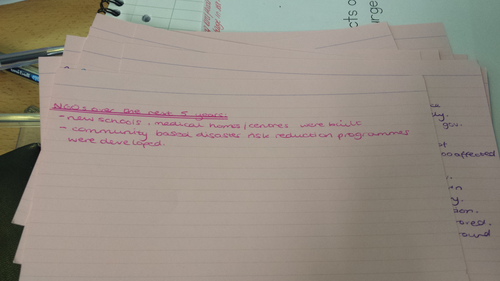 NGOs over the next 5 years:
- new schools, medical homes/centres were built
- community based disaster risk reduction programmes
were developed.
cts o
urge
ce
dy.
gov.
oo affected
y.
sion.
round